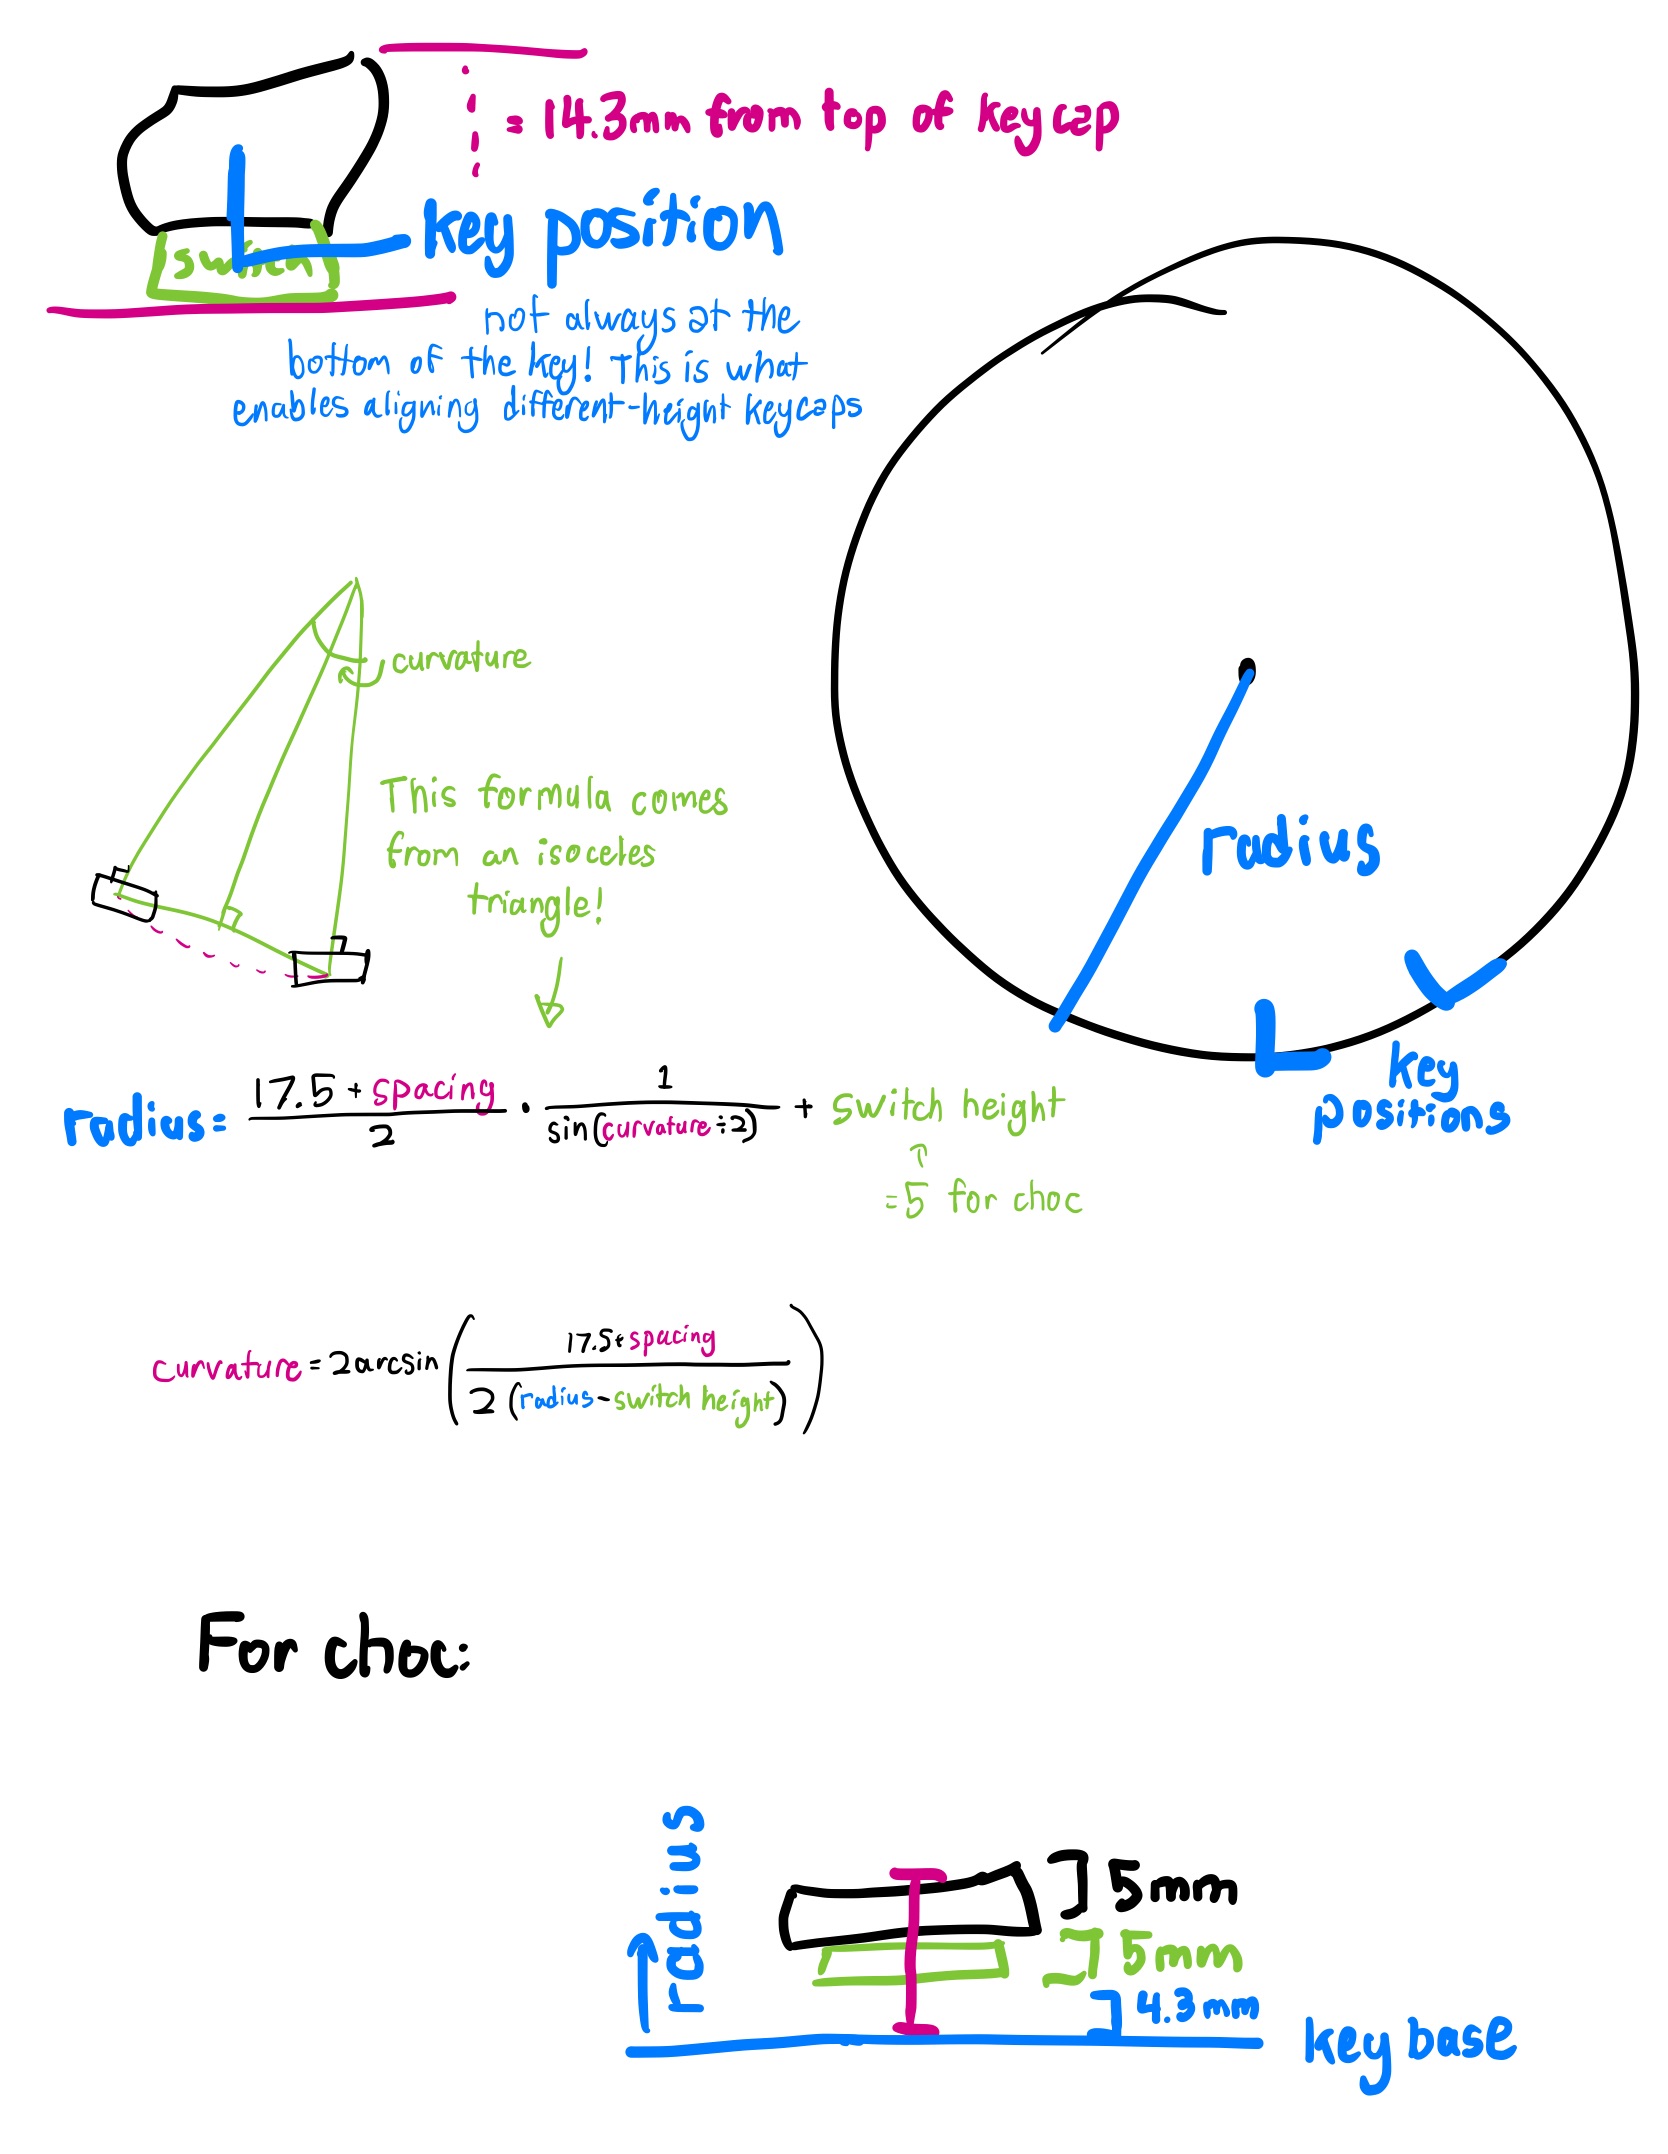 = 14.3mm from top of keycap
key position
switch
not always at the
bottom of the key! This is what
enables aligning different-height keycaps
curvature
This formula comes
from an isoceles
triangle!
radius
key
positions
radius = (17.5 + spacing)/2 · 1/sin(curvature ÷ 2) + switch height
↑
= 5 for choc
curvature = 2 arcsin((17.5 + spacing)/(2 (radius - switch height)))
For choc:
radius
5mm
5mm
4.3mm
key base